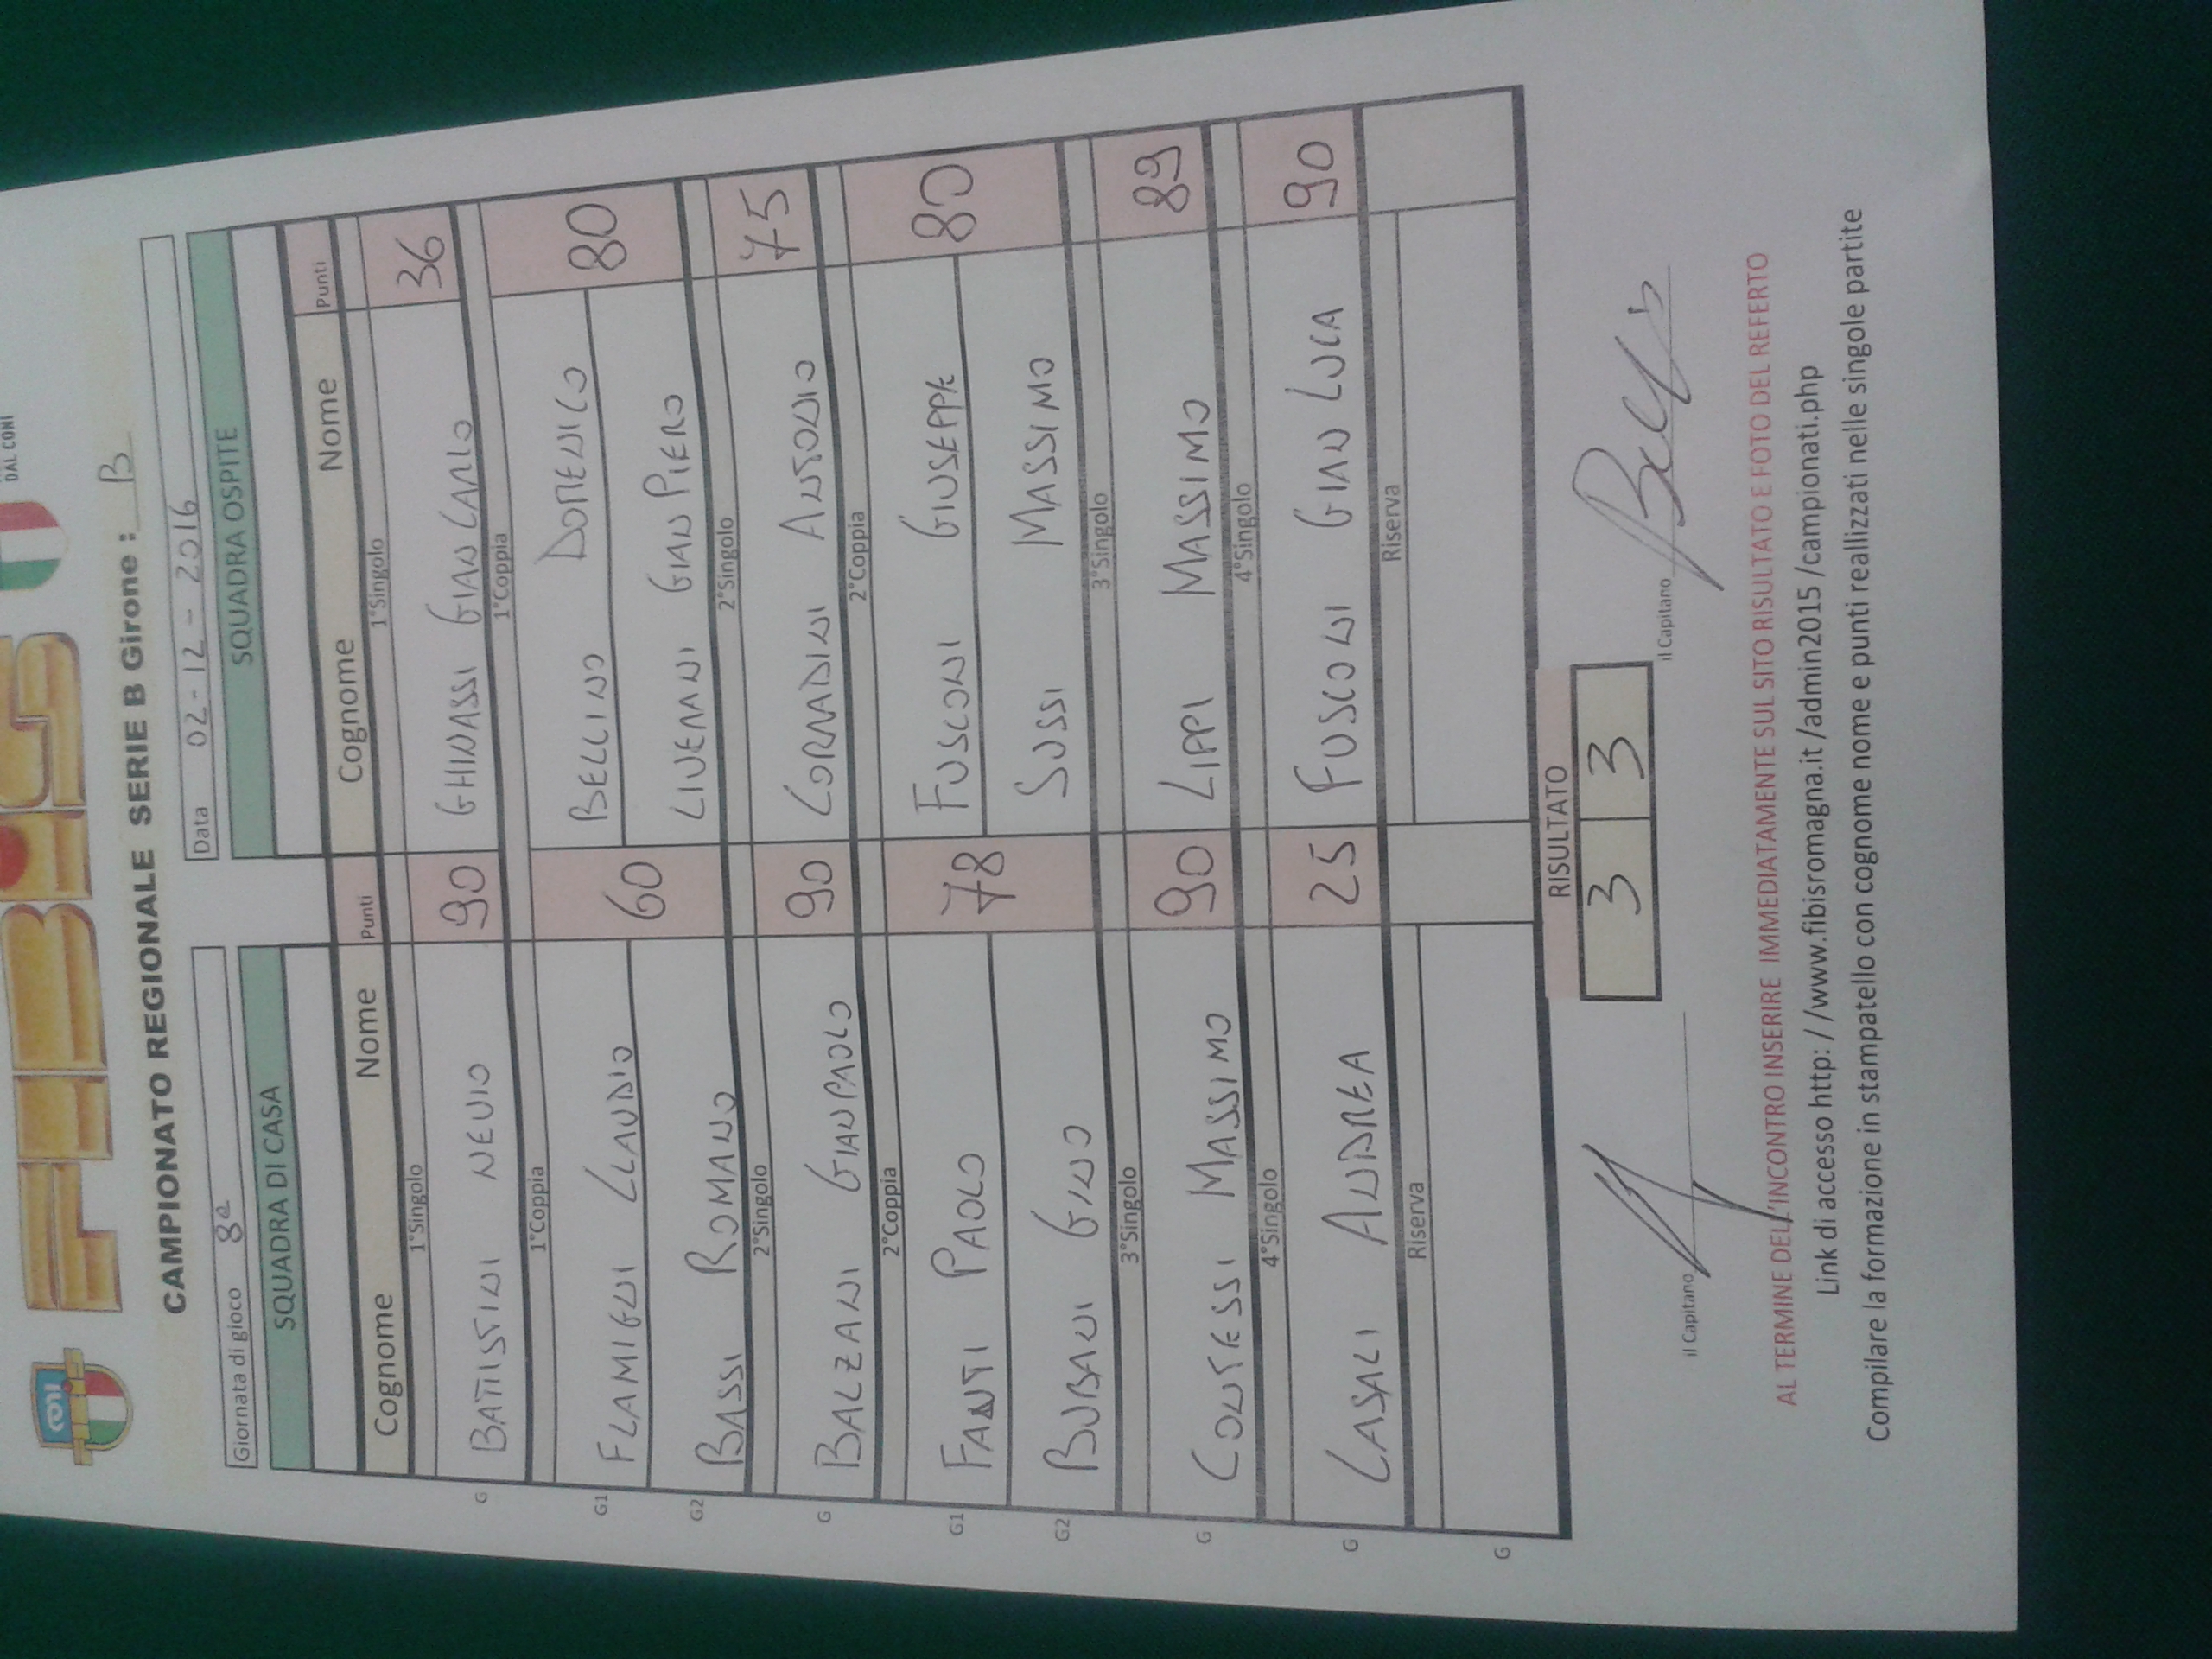 CONI
DAL CONI
FIBiS
CAMPIONATO REGIONALE SERIE B Girone : B
Giornata di gioco 8ª Data 02-12-2016
SQUADRA DI CASA SQUADRA OSPITE
Cognome Nome Punti Cognome Nome Punti
1°Singolo 1°Singolo
G BATISTINI NEVIO 90 GHINASSI GIANCARLO 36
1°Coppia 1°Coppia
G1 FLAMIGNI CLAUDIO 60 BELLINO DOMENICO 80
G2 BASSI ROMANO LIVERANI GIAN PIERO
2°Singolo 2°Singolo
G BALZANI GIANPAOLO 90 CORRADINI ANTONIO 75
2°Coppia 2°Coppia
G1 FANTI PAOLO 78 FUSCONI GIUSEPPE 80
G2 BUBANI GINO SUSSI MASSIMO
3°Singolo 3°Singolo
G CONTESSI MASSIMO 90 LIPPI MASSIMO 89
4°Singolo 4°Singolo
G CASALI ANDREA 25 FUSCONI GIAN LUCA 90
Riserva Riserva
G
RISULTATO
3 3
il Capitano il Capitano
AL TERMINE DELL'INCONTRO INSERIRE IMMEDIATAMENTE SUL SITO RISULTATO E FOTO DEL REFERTO
Link di accesso http: / /www.fibisromagna.it /admin2015 /campionati.php
Compilare la formazione in stampatello con cognome nome e punti reallizzati nelle singole partite